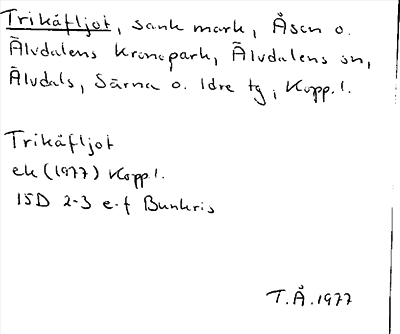 Trikåfljot, sank mark, Åsen o.
Älvdalens kronopark, Älvdalens sn,
Älvdals, Särna o. Idre tg, Kopp.l.
Trikåfljot
ek (1977) Kopp l.
15D 2-3 e-f Bunkris
T.Å.1977